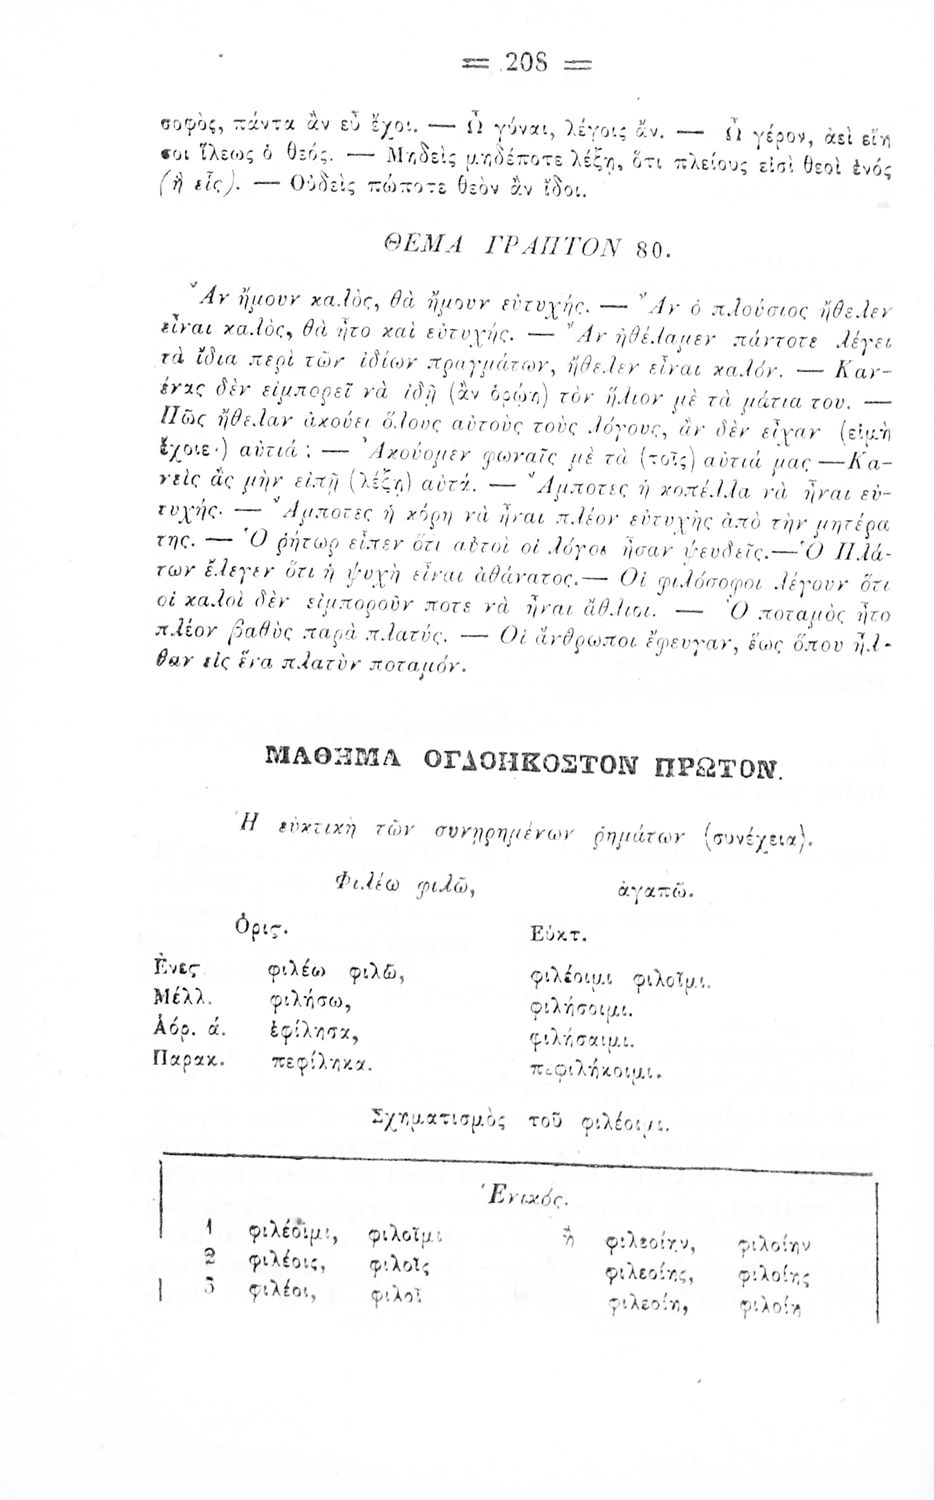 = 208 =
σοφὸς, πάντα ἂν εὖ ἔχοι. — Ὦ γύναι, λέγοις ἄν. — Ὦ γέρον, ἀεὶ εἴη
σοι ἵλεως ὁ θεός. — Μηδεὶς μηδέποτε λέξῃ, ὅτι πλείους εἰσὶ θεοὶ ἑνός
(ἢ εἷς). — Οὐδεὶς πώποτε θεὸν ἂν ἴδοι.
ΘΕΜΑ ΓΡΑΠΤΟΝ 80.
Ἂν ἤμουν καλὸς, θὰ ἤμουν εὐτυχής. — Ἂν ὁ πλούσιος ἤθελεν
εἶναι καλὸς, θὰ ἦτο καὶ εὐτυχής. — Ἂν ἠθέλαμεν πάντοτε λέγει
τὰ ἴδια περὶ τῶν ἰδίων πραγμάτων, ἤθελεν εἶναι καλόν. — Καν-
ένας δὲν εἰμπορεῖ νὰ ἰδῇ (ἂν ὁρῴη) τὸν ἥλιον μὲ τὰ μάτια του. —
Πῶς ἤθελαν ἀκούει ὅλους αὐτοὺς τοὺς λόγους, ἂν δὲν εἶχαν (εἰ μὴ
ἔχοιε·) αὐτιά; — Ἀκούομεν φωναῖς μὲ τὰ (τοῖς) αὐτιά μας — Κα-
νεὶς ἂς μὴν εἰπῇ (λέξῃ) αὐτά. — Ἄμποτες ἡ κοπέλλα νὰ ἦναι εὐ-
τυχής. — Ἄμποτες ἡ κόρη νὰ ἦναι πλέον εὐτυχὴς ἀπὸ τὴν μητέρα
της. — Ὁ ῥήτωρ εἶπεν ὅτι αὐτοὶ οἱ λόγοι ἦσαν ψευδεῖς.— Ὁ Πλά-
των ἔλεγεν ὅτι ἡ ψυχὴ εἶναι ἀθάνατος.— Οἱ φιλόσοφοι λέγουν ὅτι
οἱ καλοὶ δὲν εἰμποροῦν ποτε νὰ ἦναι ἄθλιοι. — Ὁ ποταμὸς ἦτο
πλέον βαθὺς παρὰ πλατύς. — Οἱ ἄνθρωποι ἔφευγαν, ἕως ὅπου ἦλ-
θαν εἰς ἕνα πλατὺν ποταμόν.
ΜΑΘΗΜΑ ΟΓΔΟΗΚΟΣΤΟΝ ΠΡΩΤΟΝ.
Ἡ εὐκτικὴ τῶν συνῃρημένων ῥημάτων (συνέχεια).
Φιλέω φιλῶ, ἀγαπῶ.
Ὁρις. Εὐκτ.
Ἐνες φιλέω φιλῶ, φιλέοιμι φιλοῖμι.
Μέλλ. φιλήσω, φιλήσοιμι.
Ἀόρ. ά. ἐφίλησα, φιλήσαιμι.
Παρακ. πεφίληκα. πεφιλήκοιμι.
Σχηματισμὸς τοῦ φιλέοιμι.
Ἑνικός.
1 φιλέοιμι, φιλοῖμι ἢ φιλεοίην, φιλοίην
2 φιλέοις, φιλοῖς φιλεοίης, φιλοίης
3 φιλέοι, φιλοῖ φιλεοίη, φιλοίη